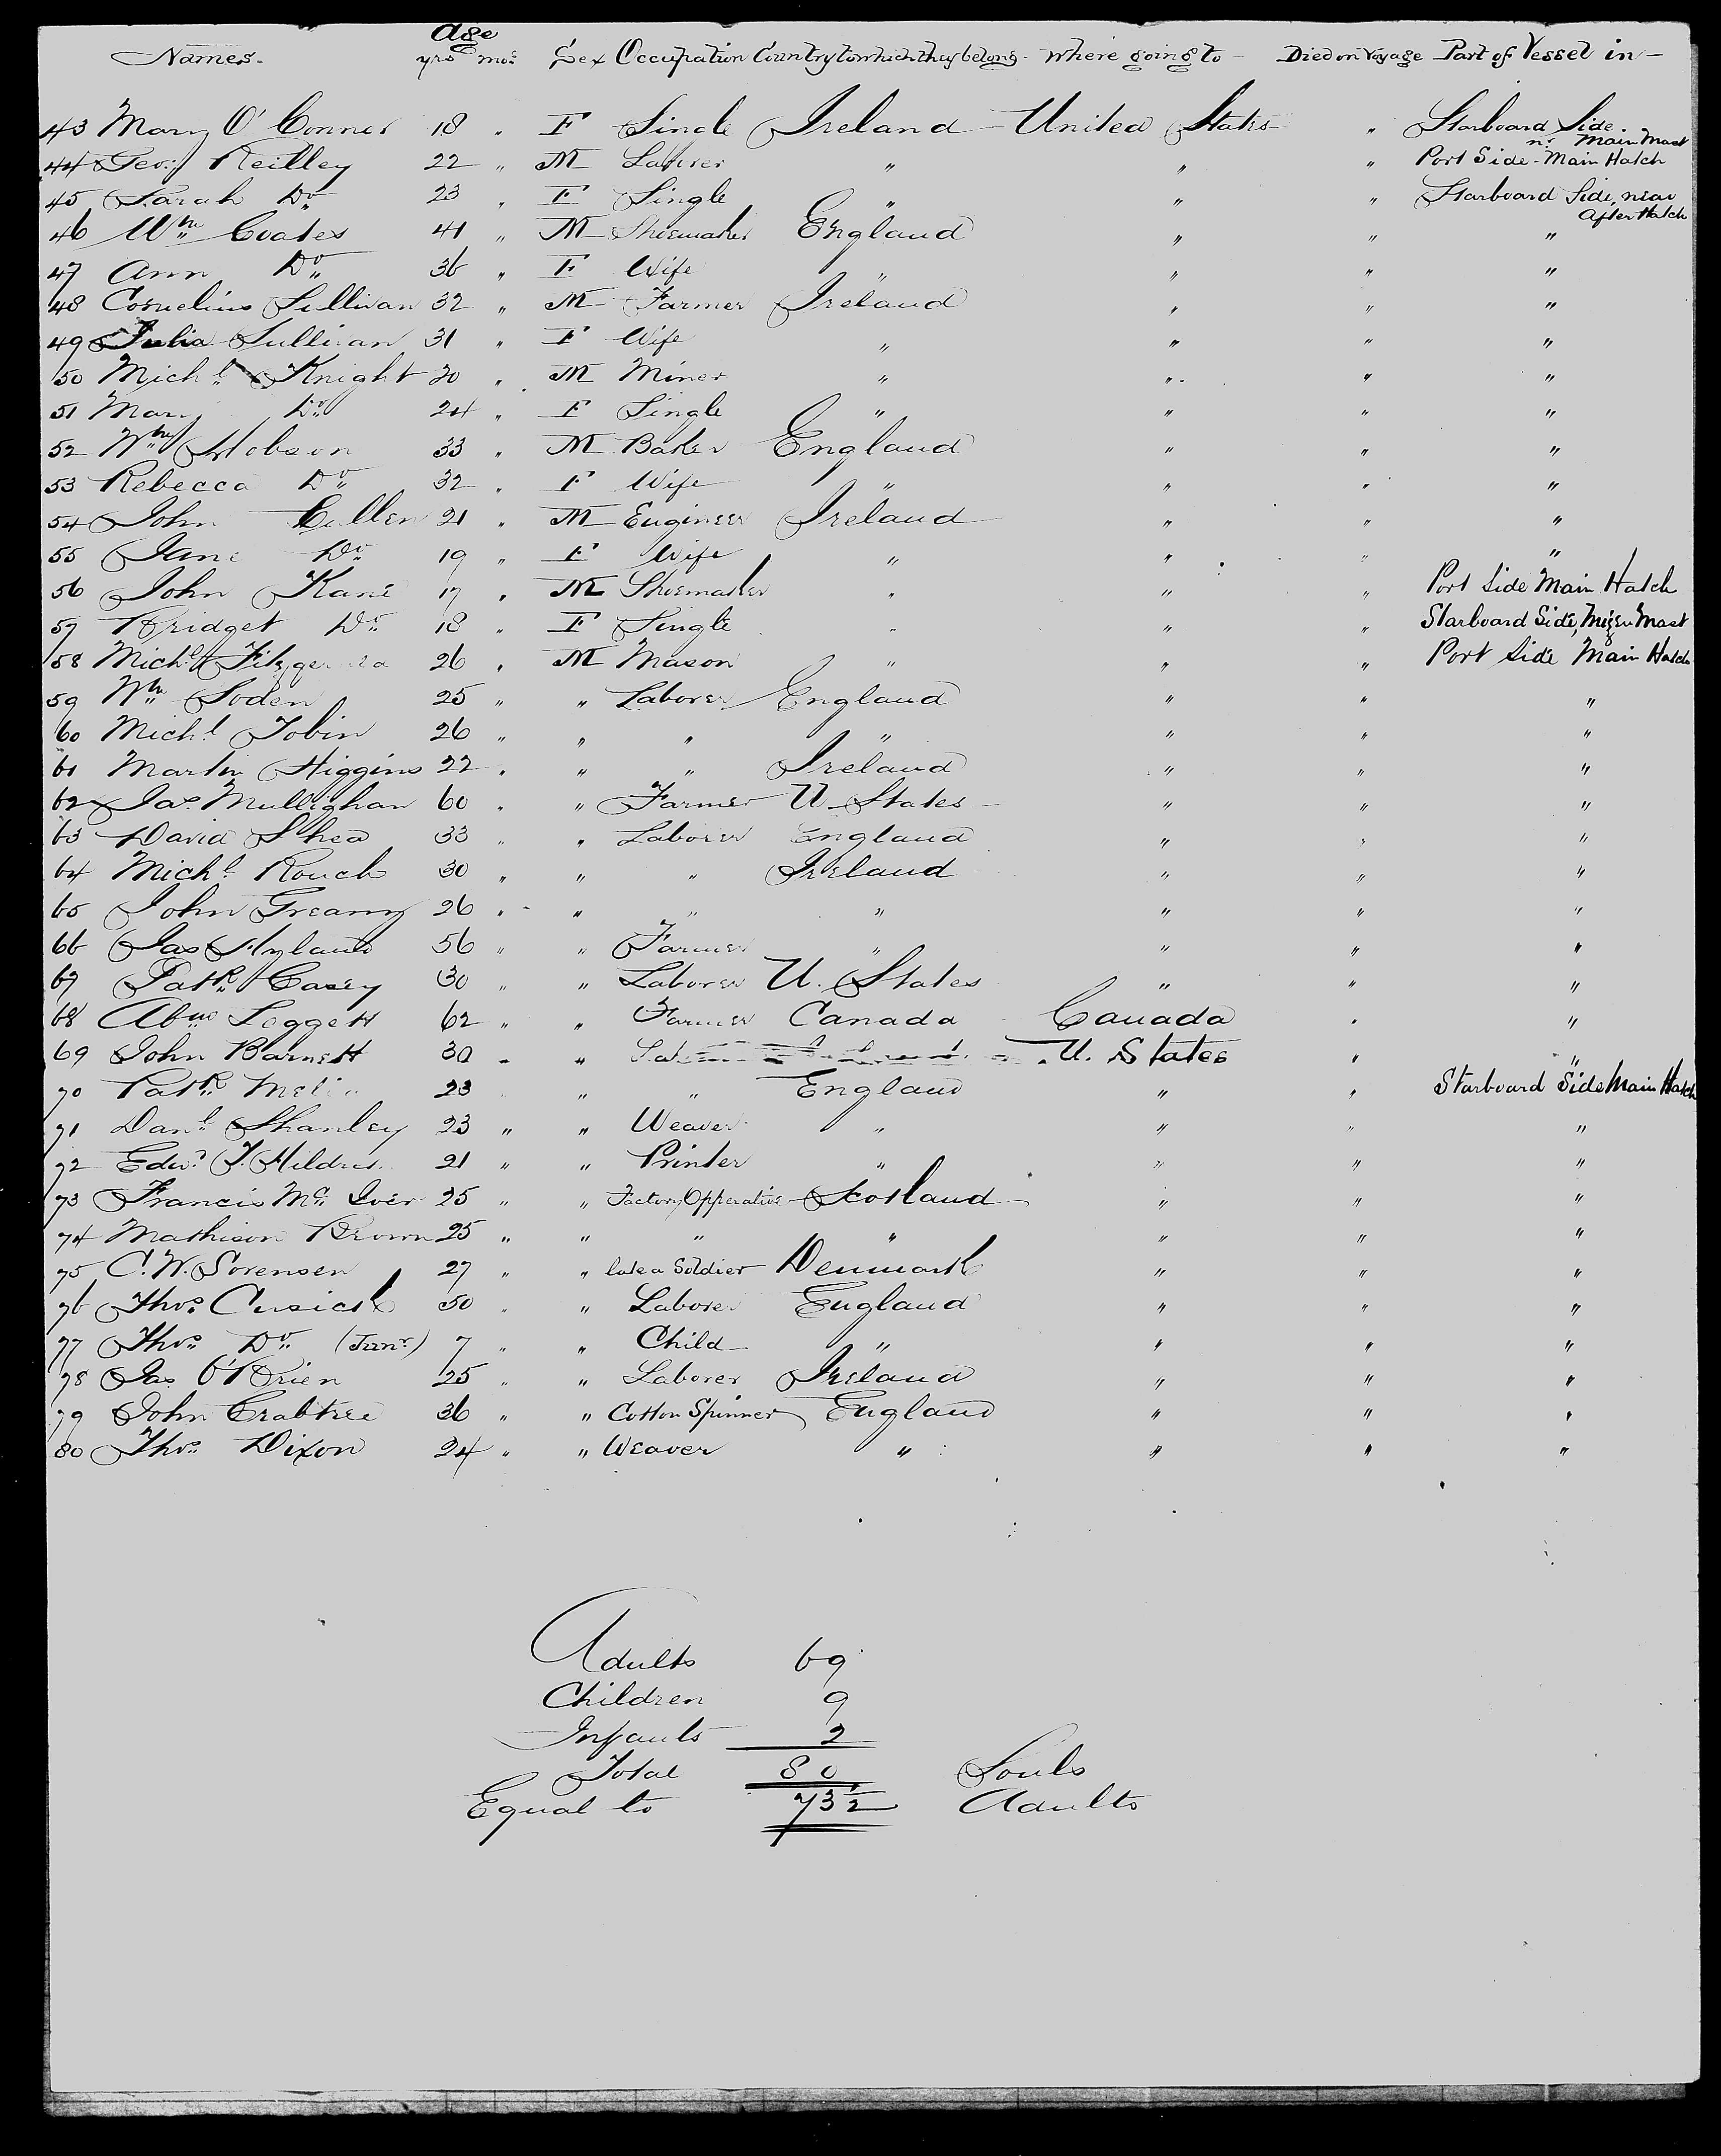 Age
Names. yrs mos Sex Occupation Country to which they belong. Where going to Died on Voyage Part of Vessel in
43 Mary O'Conner 18 " F Single Ireland United States " Starboard Side nr Main Mast
44 Geo: Reilley 22 " M Laborer " " " Port Side - Main Hatch
45 Sarah Do 23 " F Single " " " Starboard Side, near After Hatch
46 Wm Coates 41 " M Shoemaker England " " "
47 Ann Do 36 " F Wife " " " "
48 Cornelius Sullivan 32 " M Farmer Ireland " " "
49 Julia Sullivan 31 " F Wife " " " "
50 Michl Knight 30 " M Miner " " " "
51 Mary Do 24 " F Single " " " "
52 Wm Hobson 33 " M Baker England " " "
53 Rebecca Do 32 " F Wife " " " "
54 John Cullen 21 " M Engineer Ireland " " "
55 Jane Do 19 " F Wife " " " "
56 John Kane 17 " M Shoemaker " " " Port Side Main Hatch
57 Bridget Do 18 " F Single " " " Starboard Side, Mizen Mast
58 Michl 26 " M Mason " " " Port Side Main Hatch
59 Wm Soden 25 " " Laborer England " " "
60 Michl Tobin 26 " " " " " " "
61 Martin Higgins 22 " " " Ireland " " "
62 Jas Mullighan 60 " " Farmer U. States " " "
63 David Shea 33 " " Laborer England " " "
64 Michl Rouch 30 " " " Ireland " " "
65 John Greany 26 " " " " " " "
66 Jas Hyland 56 " " Farmer " " " "
67 Patk Casey 30 " " Laborer U. States " " "
68 Abm Leggett 62 " " Farmer Canada Canada " "
69 John Barnett 30 " " U. States " "
70 Patk 23 " " England " " Starboard Side Main Hatch
71 Danl Shanley 23 " " Weaver " " " "
72 Edwd J. 21 " " Printer " " " "
73 Francis Mc Iver 25 " " Factory Opperative Scotland " " "
74 Mathison Brown 25 " " " " " " "
75 C. W. Sorensen 27 " " late a Soldier Denmark " " "
76 Thos Cusick 50 " " Laborer England " " "
77 Thos Do (Junr) 7 " " Child " " " "
78 Jas O'Brien 25 " " Laborer Ireland " " "
79 John Crabtree 36 " " Cotton Spinner England " " "
80 Thos Dixon 24 " " Weaver " " " "
Adults 69
Children 9
Infants 2
Total 80 Souls
Equal to 73½ Adults